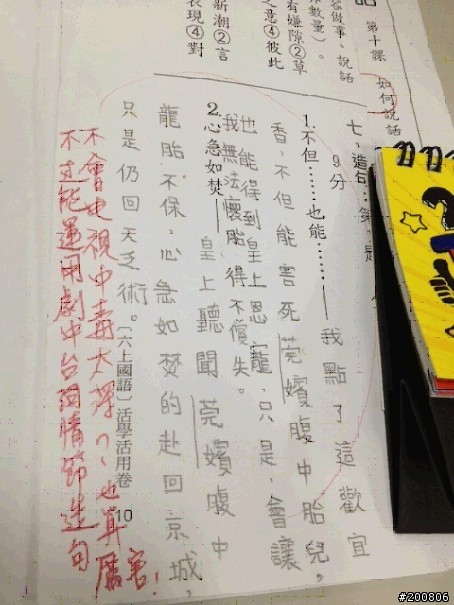 第十課 如何說話
做事、說話
數量)。
有嫌隙②草
之意④彼此
新潮②言
表現④對
七、造句：
9分
1.不但……也能……——我點了這歡宜
香,不但能害死莞嬪腹中胎兒,
也能得到皇上恩寵,只是,會讓
我無法懷胎,得不償失。
2.心急如焚——皇上聽聞莞嬪腹中
龍胎不保,心急如焚的赴回京城,
只是仍回天乏術。
〔六上國語〕活學活用卷 10
不會電視中毒太深ㄇ、也算厲害!
不過能運用劇中台詞情節造句
#200806